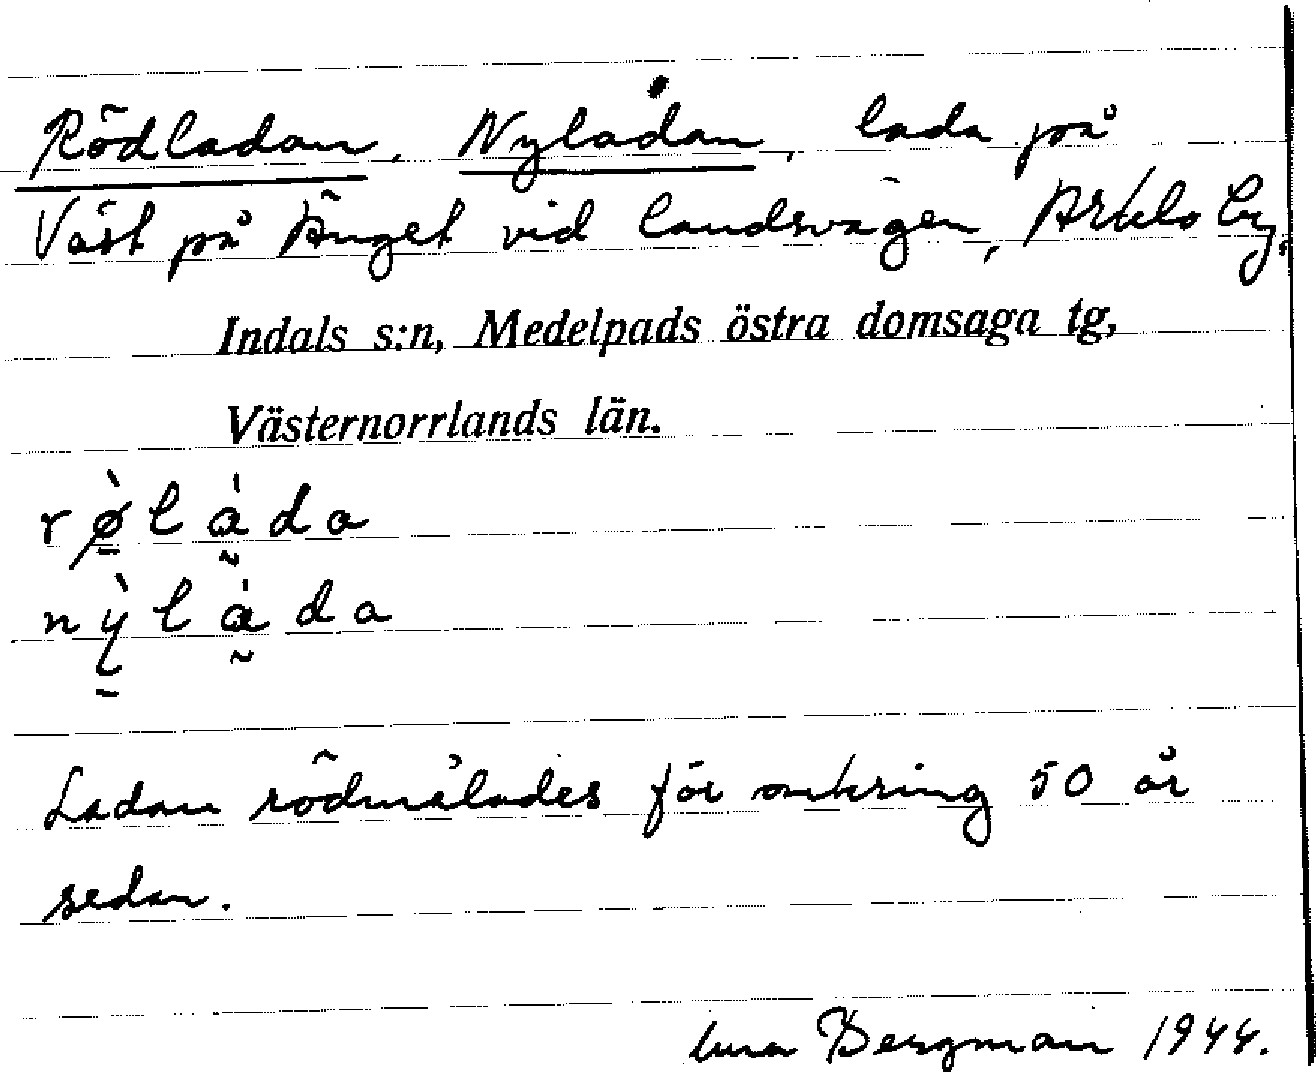 Rödladan, Nyladan, lada på
Väst på Änget vid landsvägen, Arklo by.
Indals s:n, Medelpads östra domsaga tg,
Västernorrlands län.
rø̀láda
nỳláda
Ladan rödmålades för omkring 50 år
sedan.
Bergman 1944.